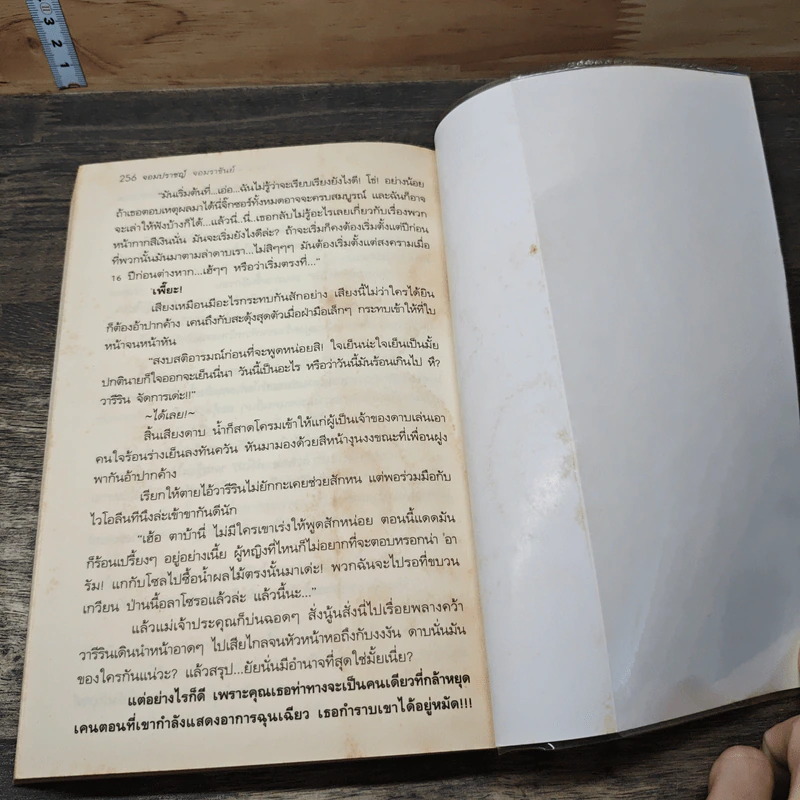 3
2
1
256 จอมปราชญ์ จอมราชันย์
"มันเริ่มต้นที่...เอ่อ...ฉันไม่รู้ว่าจะเรียบเรียงยังไงดี! โธ่! อย่างน้อย
ถ้าเธอตอบเหตุผลมาได้นี่จิ๊กซอร์ทั้งหมดอาจจะครบสมบูรณ์ และฉันก็อาจ
จะเล่าให้ฟังบ้างก็ได้...แล้วนี่..นี่..เธอกลับไม่รู้อะไรเลยเกี่ยวกับเรื่องพวก
หน้ากากสีเงินนั่น มันจะเริ่มยังไงดีล่ะ? ถ้าจะเริ่มก็คงต้องเริ่มตั้งแต่ปีก่อน
ที่พวกนั้นมันมาตามล่าดาบเรา...ไม่สิๆๆๆ มันต้องเริ่มตั้งแต่สงครามเมื่อ
16 ปีก่อนต่างหาก...เฮ้ๆๆ หรือว่าเริ่มตรงที่..."
เพี๊ยะ!
เสียงเหมือนมีอะไรกระทบกันสักอย่าง เสียงนี้ไม่ว่าใครได้ยิน
ก็ต้องอ้าปากค้าง เคนถึงกับสะดุ้งสุดตัวเมื่อฝ่ามือเล็กๆ กระทบเข้าให้ที่ใบ
หน้าจนหน้าหัน
"สงบสติอารมณ์ก่อนที่จะพูดหน่อยสิ! ใจเย็นน่ะใจเย็นเป็นมั้ย
ปกตินายก็ใจออกจะเย็นนี่นา วันนี้เป็นอะไร หรือว่าวันนี้มันร้อนเกินไป หึ?
วารีริน จัดการเด่ะ!!"
~ได้เลย!~
สิ้นเสียงดาบ น้ำก็สาดโครมเข้าให้แก่ผู้เป็นเจ้าของดาบเล่นเอา
คนใจร้อนร่างเย็นลงทันควัน หันมามองด้วยสีหน้างุนงงขณะที่เพื่อนฝูง
พากันอ้าปากค้าง
เรียกให้ตายไอ้วารีรินไม่ยักกะเคยช่วยสักหน แต่พอร่วมมือกับ
ไวโอลีนทีนึงล่ะเข้าขากันดีนัก
"เฮ้อ ตาบ้านี่ ไม่มีใครเขาเร่งให้พูดสักหน่อย ตอนนี้แดดมัน
ก็ร้อนเปรี้ยงๆ อยู่อย่างเนี้ย ผู้หญิงที่ไหนก็ไม่อยากที่จะตอบหรอกน่า 'อา
รัม! แกกับโซลไปซื้อน้ำผลไม้ตรงนั้นมาเด่ะ! พวกฉันจะไปรอที่ขบวน
เกวียน ป่านนี้อลาโซรอแล้วล่ะ แล้วนี้นะ..."
แล้วแม่เจ้าประคุณก็บ่นฉอดๆ สั่งนู้นสั่งนี่ไปเรื่อยพลางคว้า
วารีรินเดินนำหน้าอาดๆ ไปเสียไกลจนหัวหน้าหอถึงกับงงงัน ดาบนั่นมัน
ของใครกันแน่วะ? แล้วสรุป...ยัยนั่นมีอำนาจที่สุดใช่มั้ยเนี่ย?
แต่อย่างไรก็ดี เพราะคุณเธอท่าทางจะเป็นคนเดียวที่กล้าหยุด
เคนตอนที่เขากำลังแสดงอาการฉุนเฉียว เธอกำราบเขาได้อยู่หมัด!!!